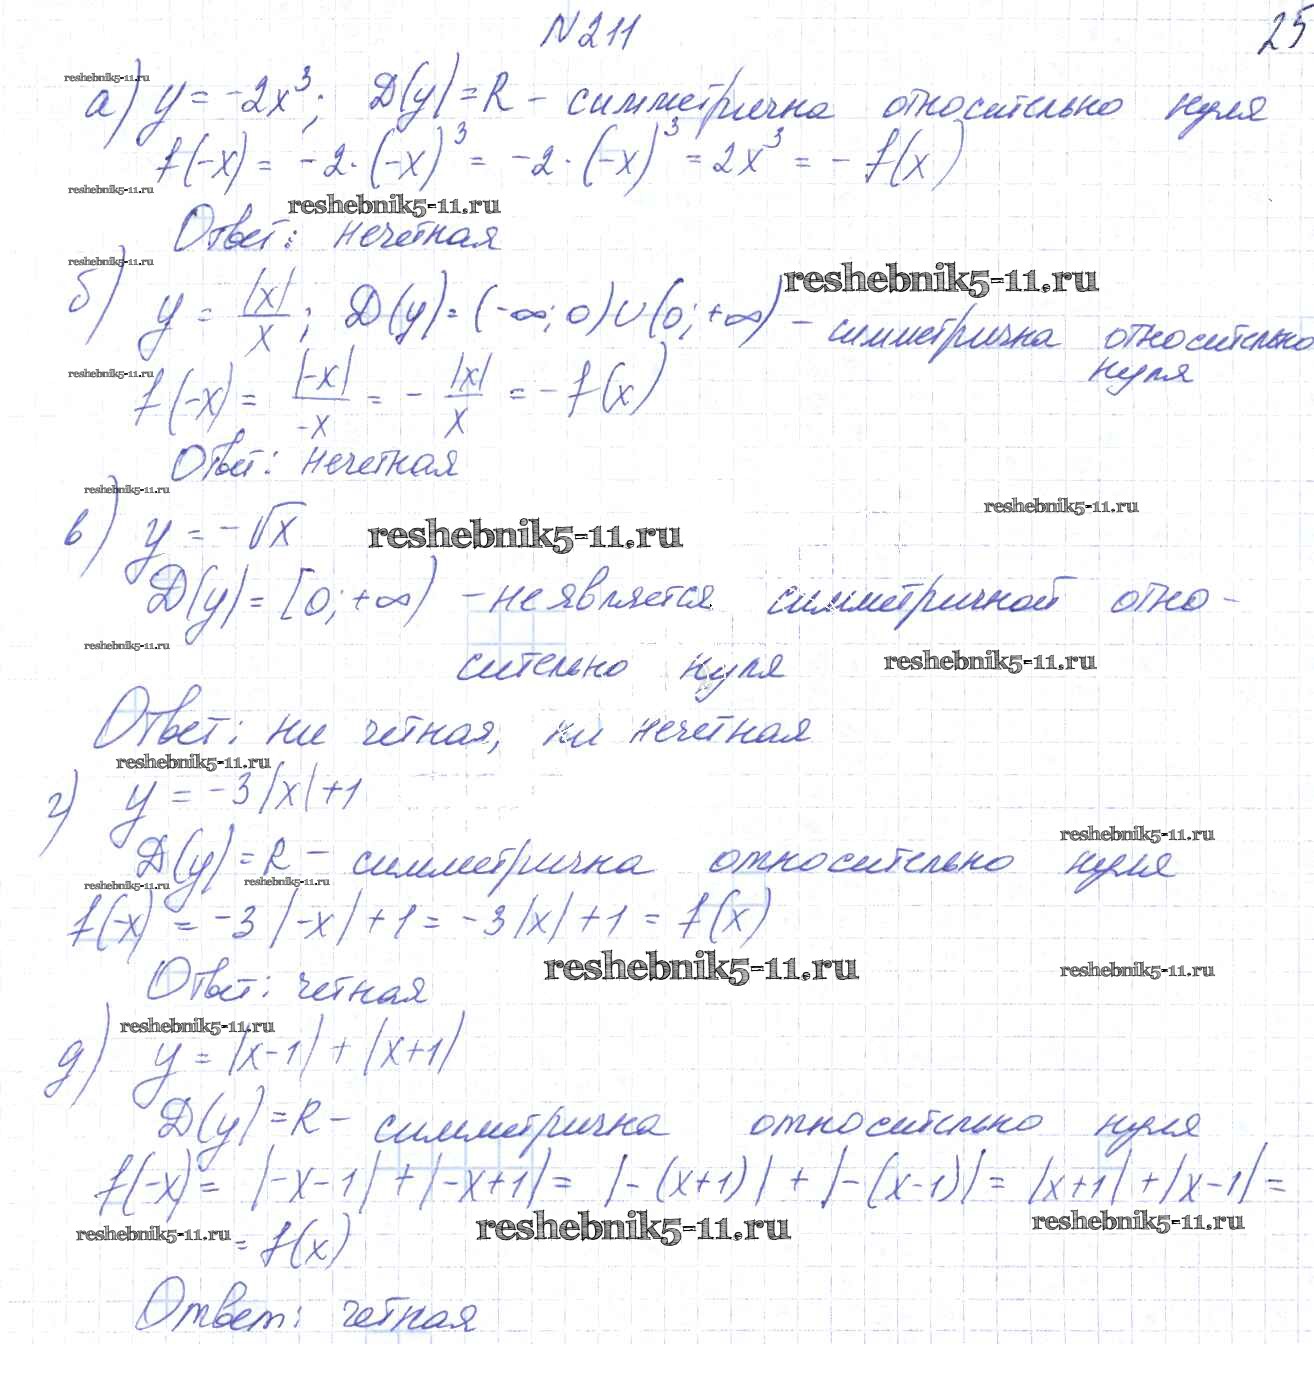 N 211
25
reshebnik5-11.ru
а) y = -2x³; D(y) = R - симметрична относительно нуля
f(-x) = -2·(-x)³ = -2·(-x)³ = 2x³ = -f(x)
reshebnik5-11.ru
reshebnik5-11.ru
Ответ: нечетная
reshebnik5-11.ru
reshebnik5-11.ru
б) y = |x|/x; D(y) = (-∞; 0) ∪ (0; +∞) - симметрична относительно
нуля
reshebnik5-11.ru
f(-x) = |-x|/-x = - |x|/x = -f(x)
Ответ: нечетная
reshebnik5-11.ru
reshebnik5-11.ru
в) y = -√x
reshebnik5-11.ru
D(y) = [0; +∞) - не является симметричной отно-
reshebnik5-11.ru
сительно нуля
reshebnik5-11.ru
Ответ: ни четная, ни нечетная
reshebnik5-11.ru
г) y = -3|x|+1
reshebnik5-11.ru
D(y) = R - симметрична относительно нуля
reshebnik5-11.ru
reshebnik5-11.ru
f(-x) = -3|-x|+1 = -3|x|+1 = f(x)
reshebnik5-11.ru
reshebnik5-11.ru
Ответ: четная
reshebnik5-11.ru
д) y = |x-1| + |x+1|
D(y) = R - симметрична относительно нуля
f(-x) = |-x-1| + |-x+1| = |-(x+1)| + |-(x-1)| = |x+1| + |x-1| =
reshebnik5-11.ru
reshebnik5-11.ru
reshebnik5-11.ru
= f(x)
Ответ: четная